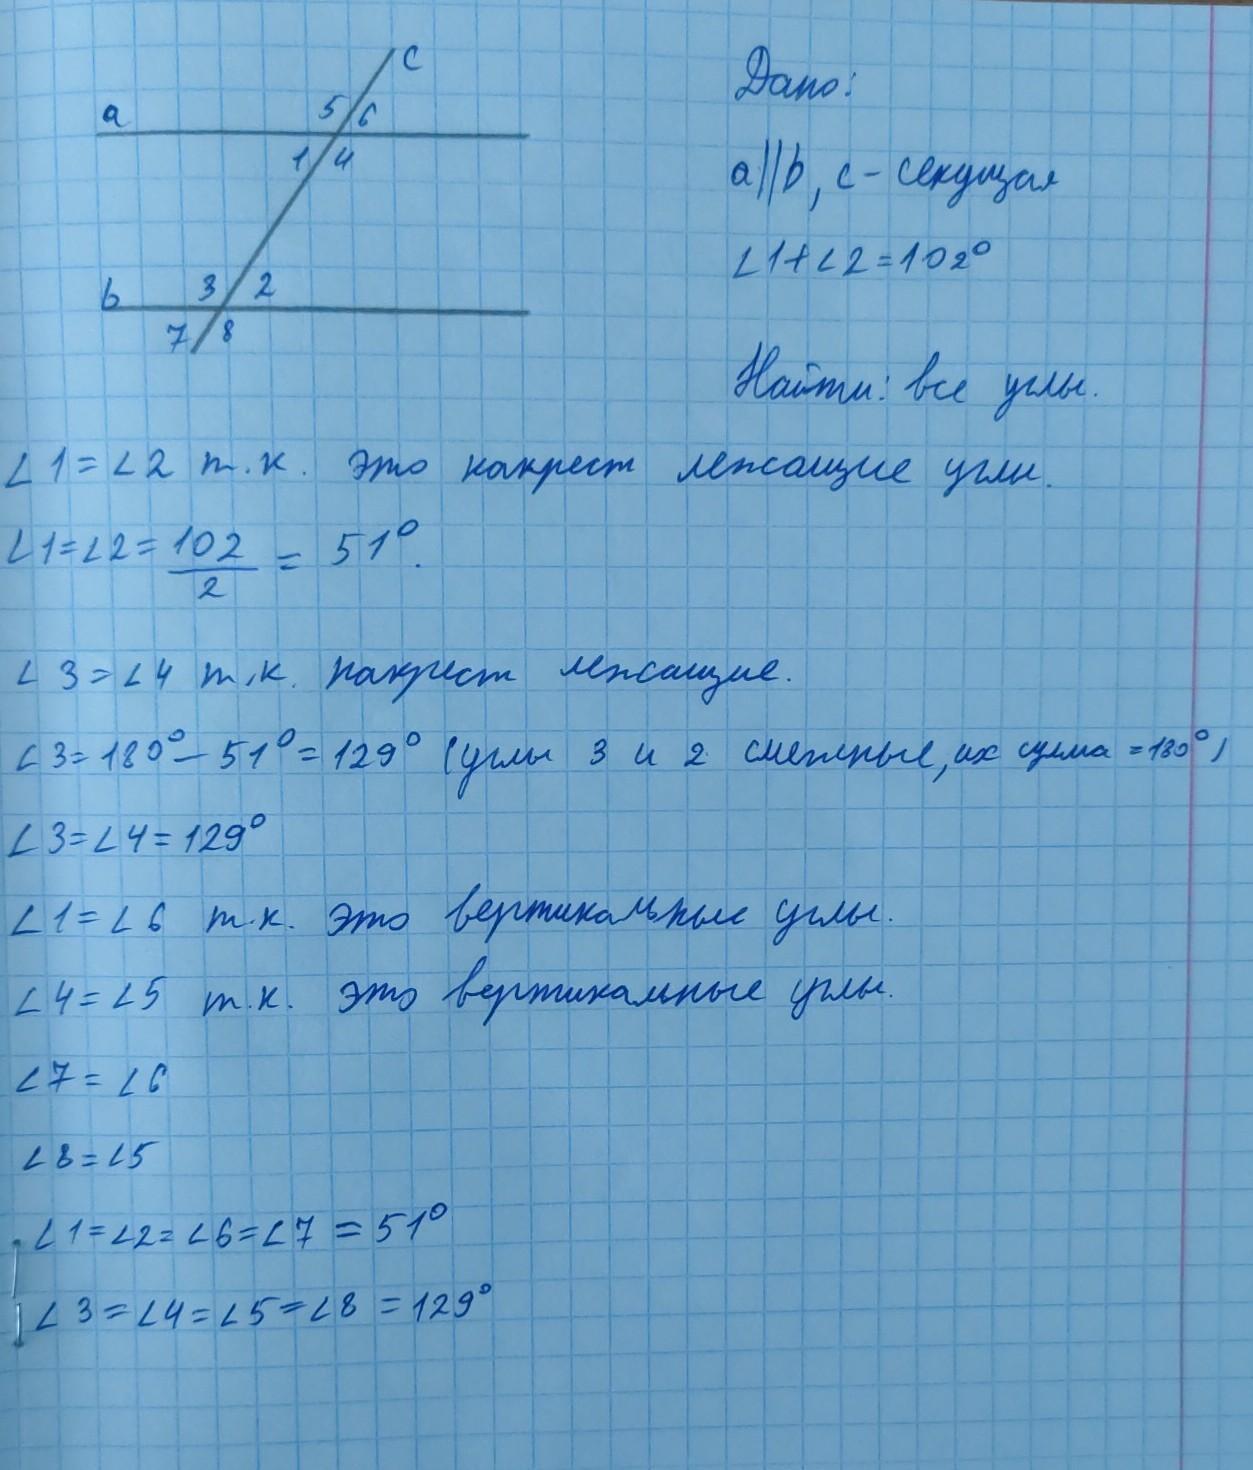 c
a
5 6
1 4
b
3 2
7 8
Дано:
a||b, c - секущая
∠1+∠2=102°
Найти: все углы.
∠1=∠2 т.к. это накрест лежащие углы.
∠1=∠2=102/2 = 51°.
∠3=∠4 т.к. накрест лежащие.
∠3=180°-51°=129° (углы 3 и 2 смежные, их сумма =180°)
∠3=∠4=129°
∠1=∠6 т.к. это вертикальные углы.
∠4=∠5 т.к. это вертикальные углы.
∠7=∠6
∠8=∠5
∠1=∠2=∠6=∠7=51°
∠3=∠4=∠5=∠8=129°